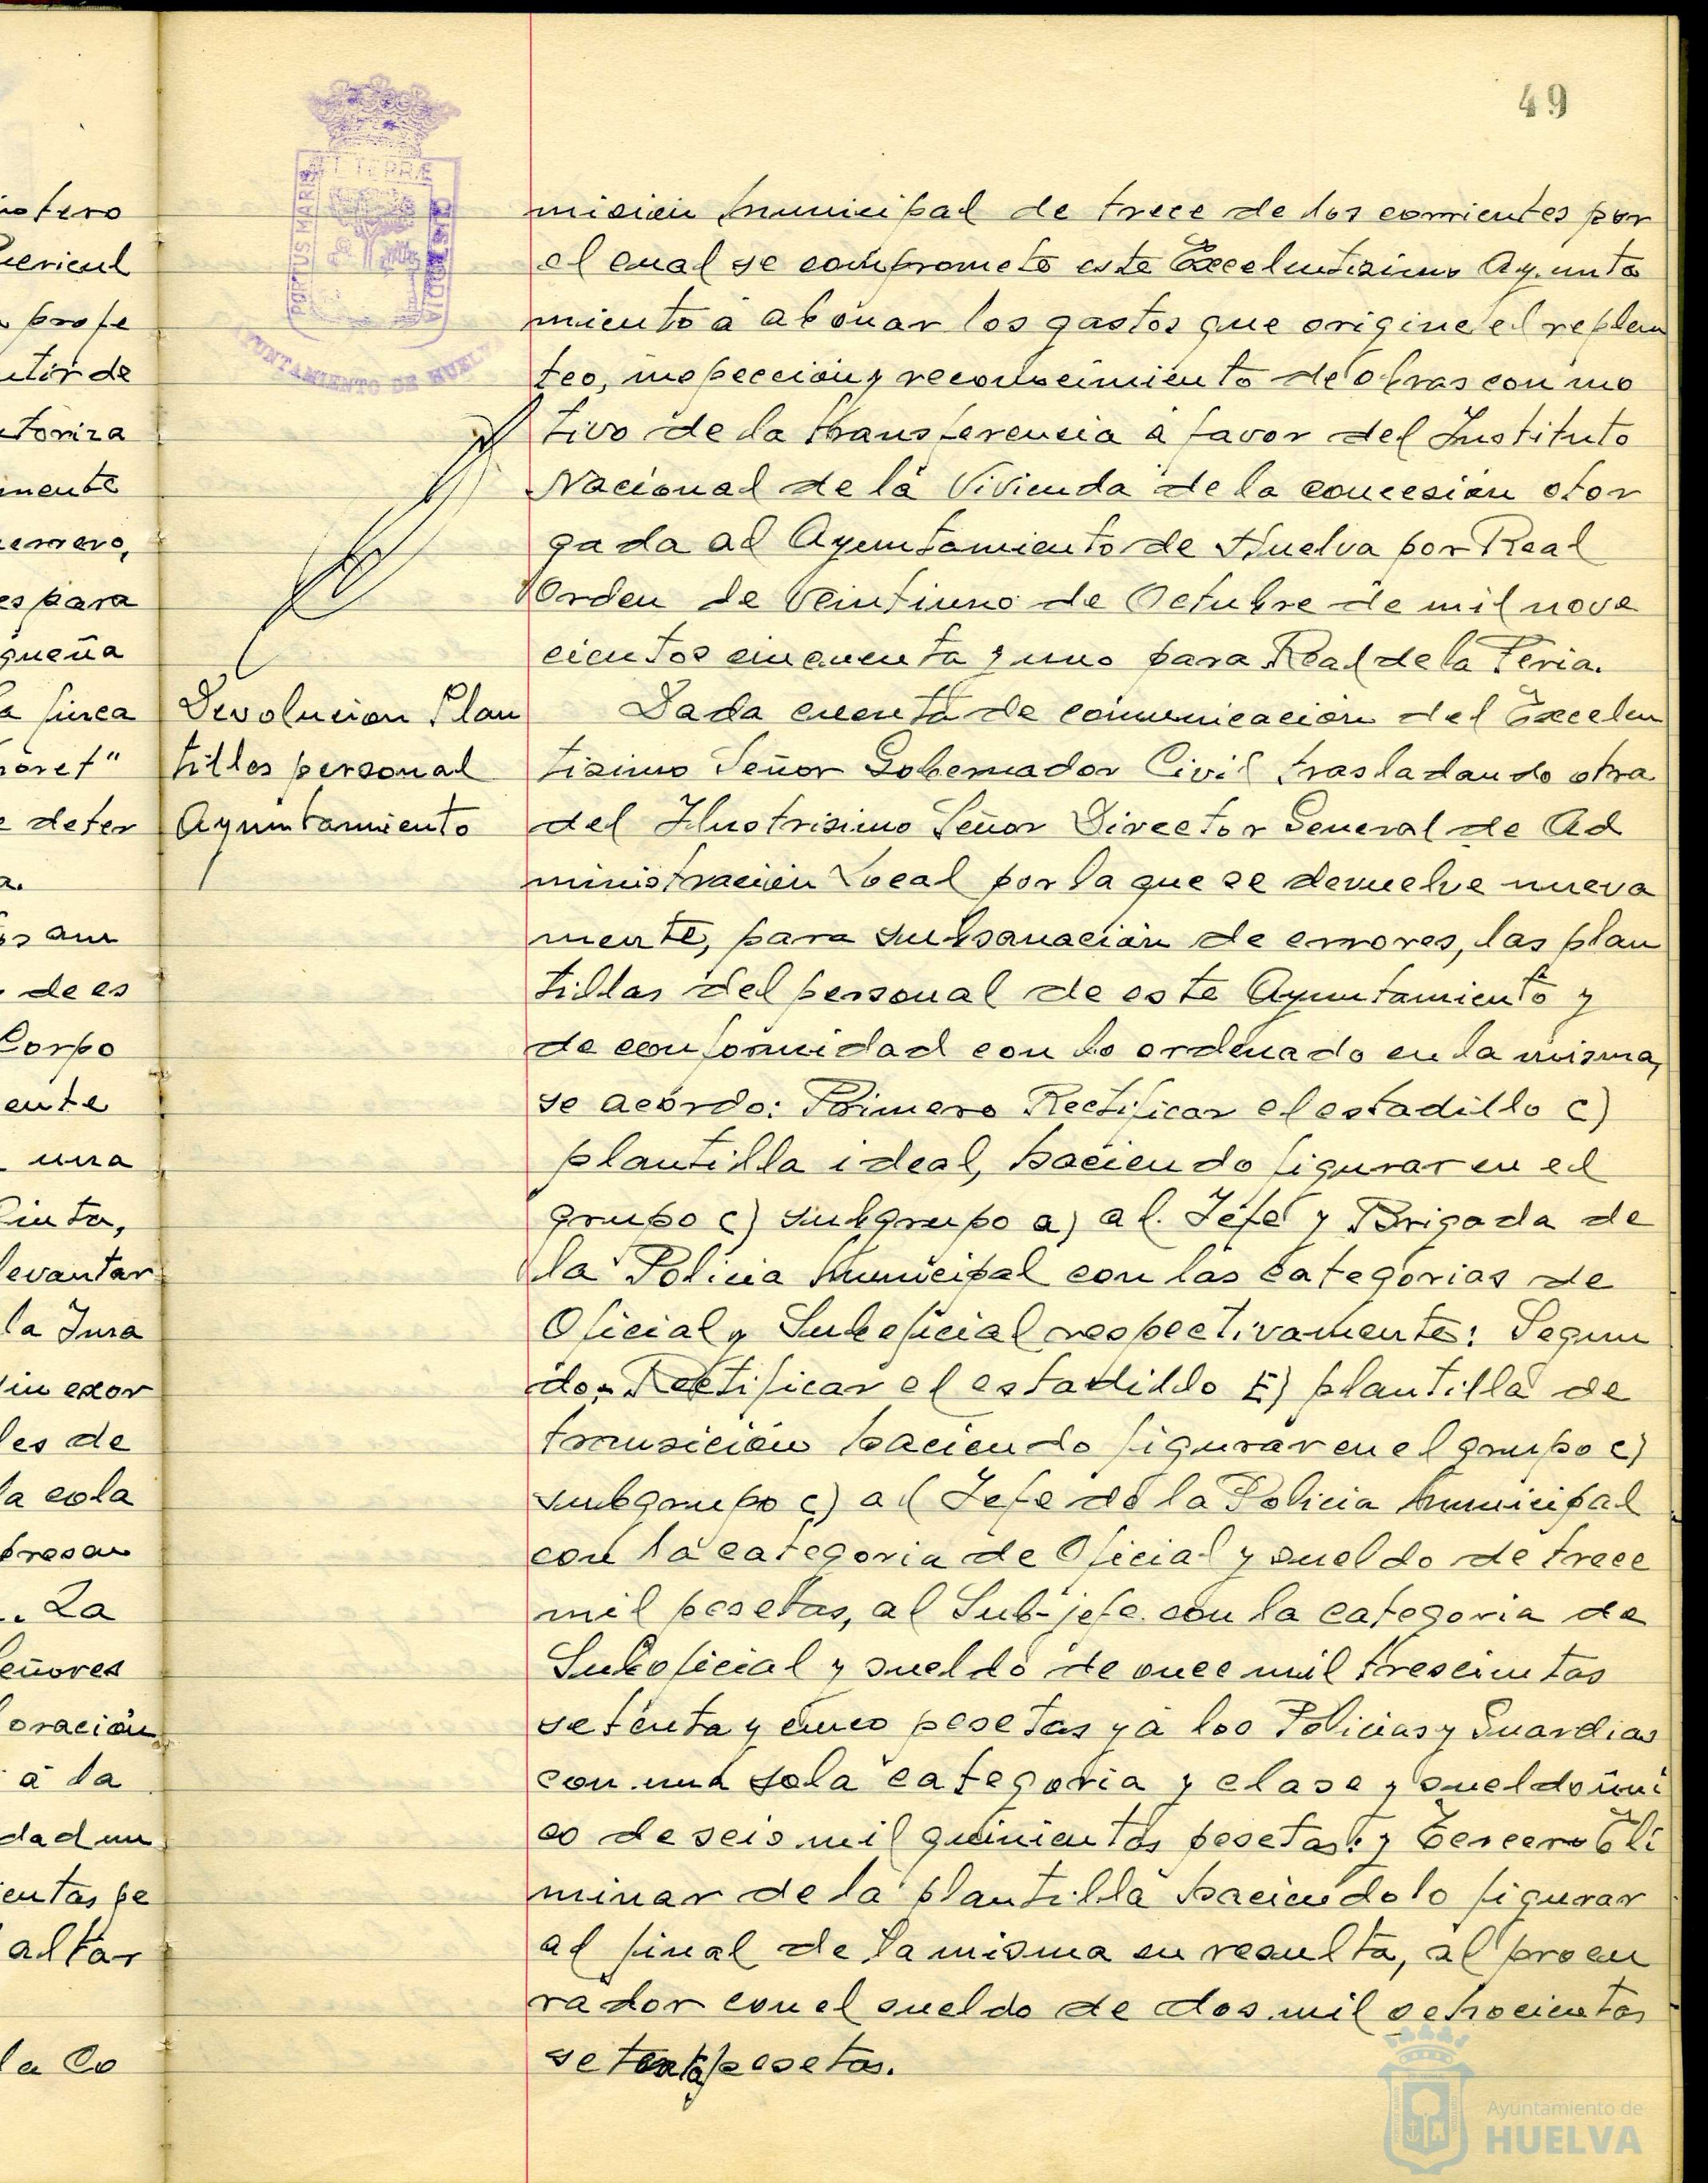 49
PORTUS MARIS ET TERRÆ CUSTODIA
AYUNTAMIENTO DE HUELVA
mision municipal de trece de los corrientes por
el cual se compromete este Excelentisimo Ayunta
miento á abonar los gastos que origine el replan
teo, inspeccion y reconocimiento de obras con mo
tivo de la transferencia á favor del Instituto
Nacional de la Vivienda de la concesión otor
gada al Ayuntamiento de Huelva por Real
Orden de veintiuno de Octubre de mil nove
cientos cincuenta y uno para Real de la Feria.
Devolucion Plan
tillas personal
Ayuntamiento
Dada cuenta de comunicación del Excelen
tisimo Señor Gobernador Civil trasladando otra
del Ilustrisimo Señor Director General de Ad
ministración Local por la que se devuelve nueva
mente, para subsanación de errores, las plan
tillas del personal de este Ayuntamiento y
de conformidad con lo ordenado en la misma,
se acordo: Primero Rectificar el estadillo c)
plantilla ideal, haciendo figurar en el
grupo c) subgrupo a) al Jefe y Brigada de
la Policia Municipal con las categorias de
Oficial y Suboficial respectivamente: Segun
do.- Rectificar el estadillo E) plantilla de
transición haciendo figurar en el grupo c)
subgrupo c) al Jefe de la Policia Municipal
con la categoria de Oficial y sueldo de trece
mil pesetas, al Sub-jefe con la categoria de
Suboficial y sueldo de once mil trescientas
setenta y cinco pesetas y á los Policias y Guardias
con una sola categoria y clase y sueldo úni
co de seis mil quinientas pesetas: y Tercero Eli
minar de la plantilla haciendolo figurar
al final de la misma en resulta, al procu
rador con el sueldo de dos mil ochocientas
setenta pesetas.
Ayuntamiento de
HUELVA